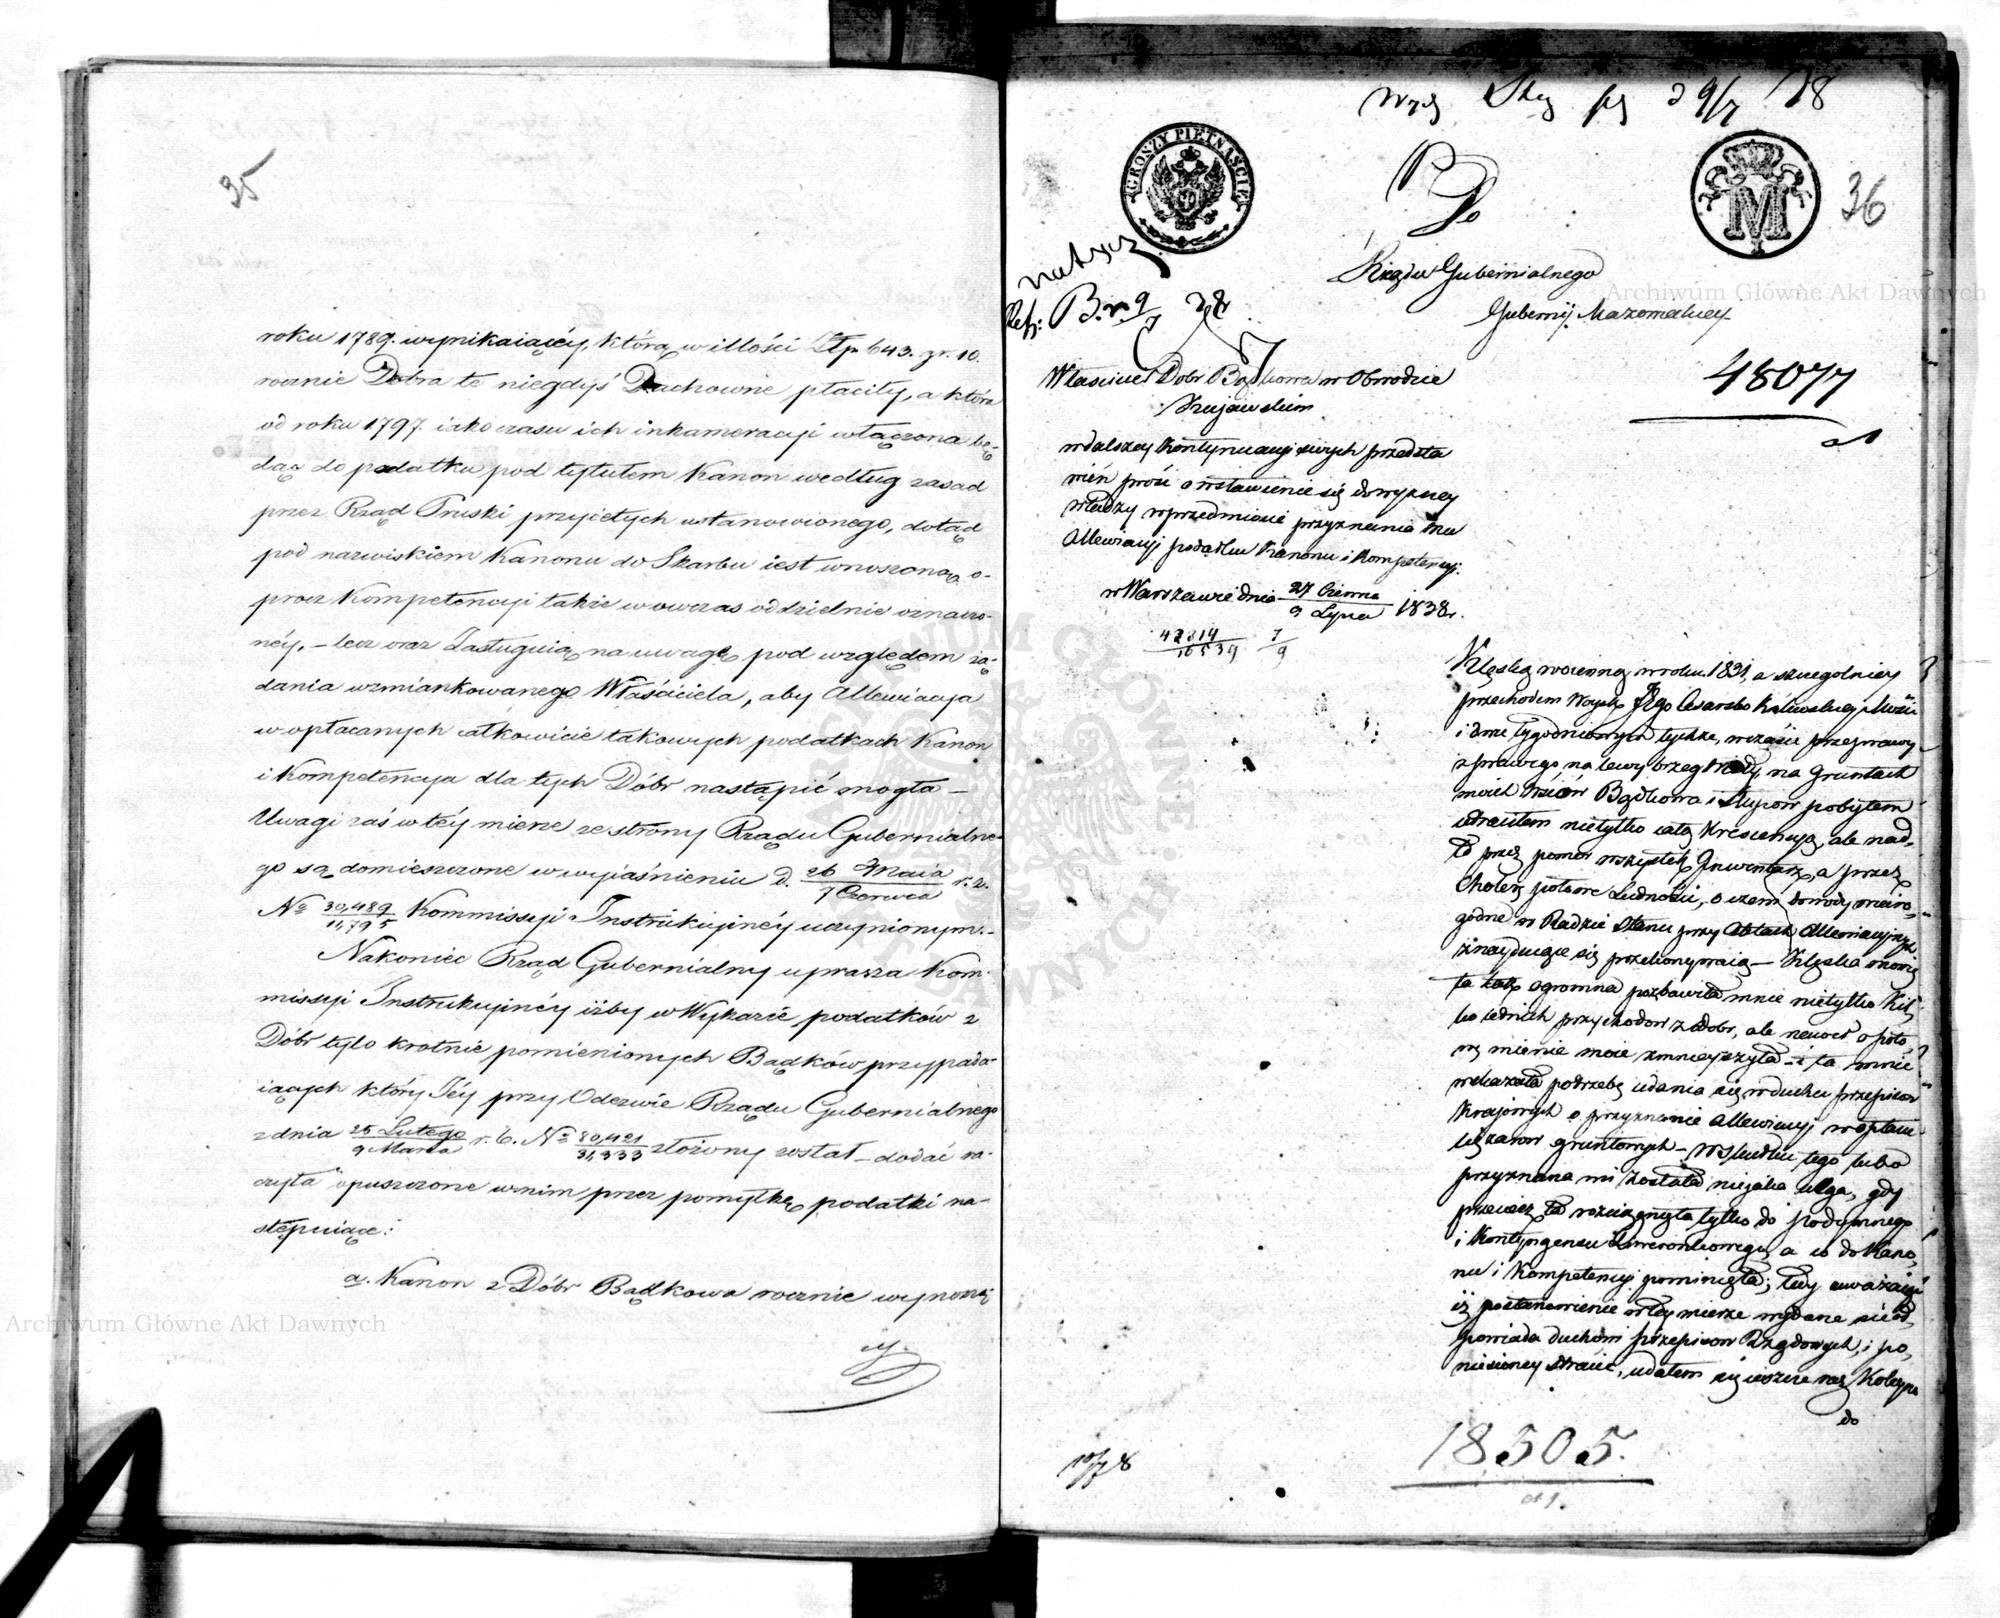 35
roku 1789. wynikaiącéy, którą w illości Złp 643. gr. 10.
rocznie Dobra te niegdyś Duchowne płaciły, a która
od roku 1797. iako czasu ich inkameracyi włączona bę-
dąc do podatku pod tytułem Kanon według zasad
przez Rząd Pruski przyiętych ustanowionego, dotąd
pod nazwiskiem Kanonu do Skarbu iest wnoszoną, o-
prócz Kompetencyi także wowczas oddzielnie oznaczo-
néy, – lecz oraz zasługuią na uwagę pod względem żą-
dania wzmiankowanego Właściciela, aby Allewiacya
w opłacanych całkowicie takowych podatkach Kanon
i Kompetencya dla tych Dóbr nastąpić mogła –
Uwagi zaś w téy mierze ze strony Rządu Gubernialne-
go są domieszczone w wyiaśnieniu d. 26 Maia / 7 Czerwca r. z.
No 30,489 / 11,795 Kommissyi Instrukcyinéy uczynionym. –
Nakoniec Rząd Gubernialny uprasza Kom-
missyi Instrukcyinéy iżby w Wykazie podatków z
Dóbr tylo krotnie pomienionych Bądków przypada-
iących który Jéy przy Odezwie Rządu Gubernialnego
z dnia 25 Lutego / 9 Marca r. b. No 80,421 / 31,333 złożony został – dodać ra-
czyła opuszczone w nim przez pomyłkę podatki na-
stępuiące:
a. Kanon z Dóbr Bądkowa rocznie wynoszą
36
GROSZY PIĘTNAŚCIE
M
Do
Rządu Gubernialnego
Gubernij Mazowieckiey
48077
Właściciel Dobr Bądkowa w Obwodzie
Kujawskim
w dalszey kontynuacyi swych przedsta
wień prosi o wstawienie się do wyższey
władzy w przedmiocie przyznania mu
Allewiacyi podatku Kanonu i Kompetencyi.
w Warszawie dnia 27 Czerwca / 9 Lipca 1838 r.
Klęską woienną w roku 1831, a szczególniey
przechodem Woysk Jego Cesarsko Królewskiey Mości
i dwu tygodniowym tychże, w czasie przeprawy
z prawego na lewy brzeg Wisły, na Gruntach
moich Wsiów Bądkowa i Słupów pobytem
utraciłem nietylko całą Krescencyą, ale nad-
to przez pomór wszystek Inwentarz, a przez
Cholerę połowę Ludności, o czem dowody wiaro-
godne w Radzie Stanu przy Aktach Allewiacyinych
znayduiące się przekonywaią – Klęska mówię
ta tak ogromna pozbawiła mnie nietylko kil-
ko letnich przychodow z Dobr, ale nawet o poło-
wę mienie moie zmnieyszyła – i ta mnie
wskazała potrzebę udania się w duchu przepisow
Kraiowych o przyznanie Allewiacyi w opłacie
ciężarow gruntowych – w skutku tego lubo
przyznana mi została niejaka ulga, gdy
przecież ta rozciągnięta tylko do podymnego
i Kontyngensu Liwerunkowego, a co do Kano-
nu i Kompetencyi pominięta; tedy uważaiąc
iż postanowienie w tey mierze wydane nie od-
powiada duchowi przepisow Rządowych, i po-
niesioney stracie, udałem się ieszcze raz Koleyno
do
18505.
Archiwum Główne Akt Dawnych
Archiwum Główne Akt Dawnych